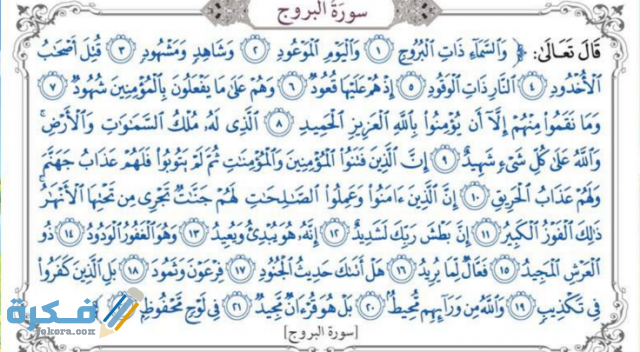 سورة البروج
قَالَ تَعَالَىٰ: ﴿ وَالسَّمَاءِ ذَاتِ الْبُرُوجِ ١ وَالْيَوْمِ الْمَوْعُودِ ٢ وَشَاهِدٍ وَمَشْهُودٍ ٣ قُتِلَ أَصْحَابُ
الْأُخْدُودِ ٤ النَّارِ ذَاتِ الْوَقُودِ ٥ إِذْ هُمْ عَلَيْهَا قُعُودٌ ٦ وَهُمْ عَلَىٰ مَا يَفْعَلُونَ بِالْمُؤْمِنِينَ شُهُودٌ ٧
وَمَا نَقَمُوا مِنْهُمْ إِلَّا أَن يُؤْمِنُوا بِاللَّهِ الْعَزِيزِ الْحَمِيدِ ٨ الَّذِي لَهُ مُلْكُ السَّمَاوَاتِ وَالْأَرْضِ ۚ
وَاللَّهُ عَلَىٰ كُلِّ شَيْءٍ شَهِيدٌ ٩ إِنَّ الَّذِينَ فَتَنُوا الْمُؤْمِنِينَ وَالْمُؤْمِنَاتِ ثُمَّ لَمْ يَتُوبُوا فَلَهُمْ عَذَابُ جَهَنَّمَ
وَلَهُمْ عَذَابُ الْحَرِيقِ ١٠ إِنَّ الَّذِينَ ءَامَنُوا وَعَمِلُوا الصَّالِحَاتِ لَهُمْ جَنَّاتٌ تَجْرِي مِن تَحْتِهَا الْأَنْهَارُ ۚ
ذَٰلِكَ الْفَوْزُ الْكَبِيرُ ١١ إِنَّ بَطْشَ رَبِّكَ لَشَدِيدٌ ١٢ إِنَّهُ هُوَ يُبْدِئُ وَيُعِيدُ ١٣ وَهُوَ الْغَفُورُ الْوَدُودُ ١٤ ذُو
الْعَرْشِ الْمَجِيدُ ١٥ فَعَّالٌ لِّمَا يُرِيدُ ١٦ هَلْ أَتَاكَ حَدِيثُ الْجُنُودِ ١٧ فِرْعَوْنَ وَثَمُودَ ١٨ بَلِ الَّذِينَ كَفَرُوا
فِي تَكْذِيبٍ ١٩ وَاللَّهُ مِن وَرَائِهِم مُّحِيطٌ ٢٠ بَلْ هُوَ قُرْءَانٌ مَّجِيدٌ ٢١ فِي لَوْحٍ مَّحْفُوظٍ
[سورة البروج]
فكرة
fekera.com